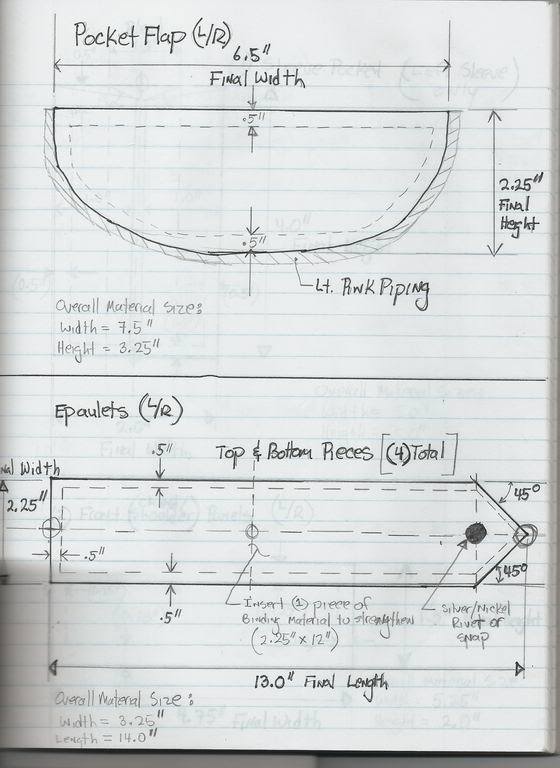 Pocket Flap (L/R)
6.5"
Final Width
.5"
2.25"
Final
Height
.5"
Lt. Pink Piping
Overall Material Size:
Width = 7.5"
Height = 3.25"
Epaulets (L/R)
.5"
Top & Bottom Pieces [(4) Total]
nal Width
2.25"
45°
.5"
45°
.5"
Insert (1) piece of
Binding Material to strengthen
(2.25" x 12")
Silver/Nickel
Rivet or
Snap
13.0" Final Length
Overall Material Size:
Width = 3.25"
Length = 14.0"